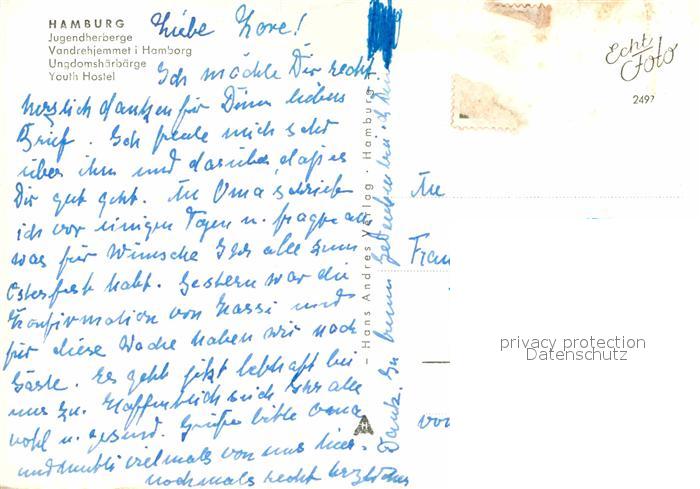 HAMBURG
Jugendherberge
Vandrehjemmet i Hamborg
Ungdomshärbärge
Youth Hostel
Liebe Lore!
Ich möchte Dir recht
herzlich danken für Deinen lieben
Brief. Ich freute mich sehr
über ihn und darüber, daß es
Dir gut geht. An Oma schrieb
ich vor einigen Tagen u. fragte an
was für Wünsche Ihr alle zum
Osterfest habt. Gestern war die
Konfirmation von und
für diese Woche haben wir noch
Gäste. Es geht jetzt lebhaft bei
uns zu. Hoffentlich seid Ihr alle
wohl u. gesund. Grüße bitte Oma
und vielmals von uns hier.
nochmals recht herzlichen
Dank.
- Hans Andres Verlag · Hamburg
Echt
Foto
2497
An
Frau
von
privacy protection
Datenschutz